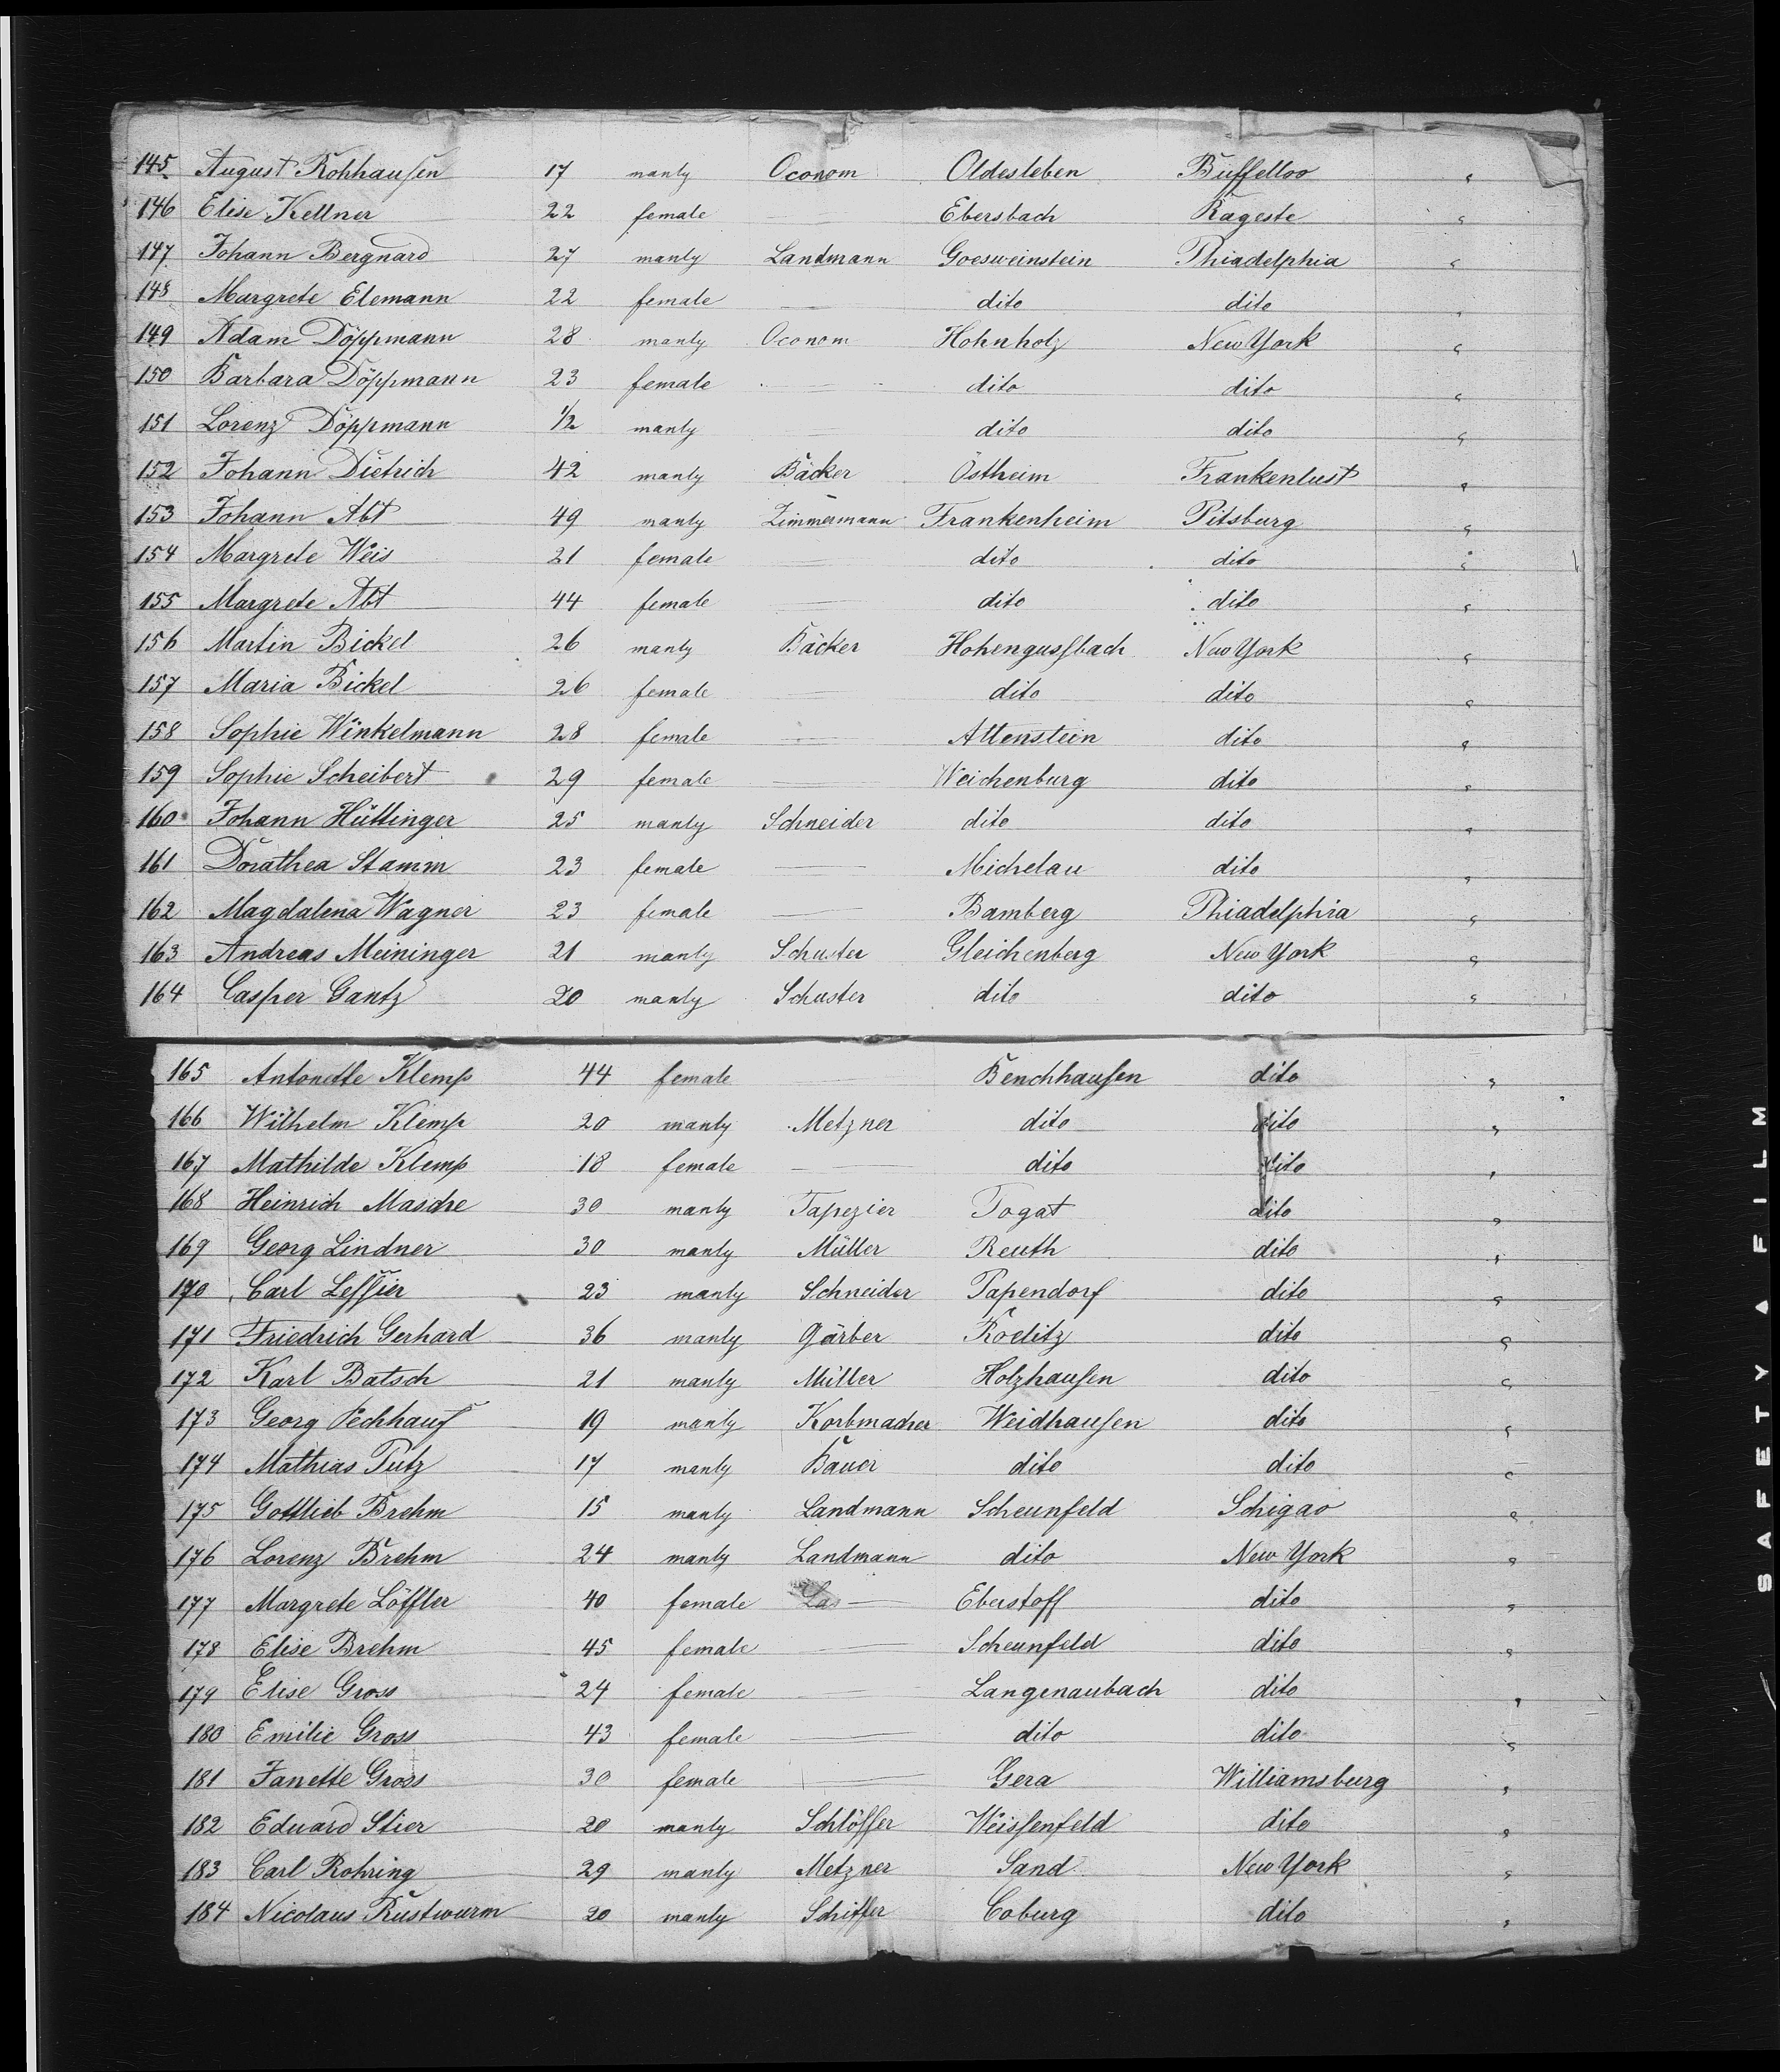 145 August Rohhausen 17 manly Oconom Oldesleben Buffelloo "
146 Elise Kellner 22 female — Ebersbach Rageste "
147 Johann Bergnard 27 manly Landmann Goesweinstein Phiadelphia "
148 Margrete Elemann 22 female — dito dito "
149 Adam Döppmann 28 manly Oconom Hohnholz New York "
150 Barbara Döppmann 23 female — dito dito "
151 Lorenz Döppmann 1/2 manly — dito dito "
152 Johann Dietrich 42 manly Bäcker Ostheim Frankenlust "
153 Johann Abt 49 manly Zimmermann Frankenheim Pitsburg "
154 Margrete Weis 21 female — dito dito "
155 Margrete Abt 44 female — dito dito "
156 Martin Bickel 26 manly Bäcker Hohengussbach New York "
157 Maria Bickel 26 female — dito dito "
158 Sophie Winkelmann 28 female — Altenstein dito "
159 Sophie Scheibert 29 female — Weichenburg dito "
160 Johann Hüttinger 25 manly Schneider dito dito "
161 Dorathea Stamm 23 female — Michelau dito "
162 Magdalena Wagner 23 female — Bamberg Phiadelphia "
163 Andreas Meininger 21 manly Schuster Gleichenberg New York "
164 Casper Gantz 20 manly Schuster dito dito "
165 Antonette Klemp 44 female — Benchhausen dito "
166 Wilhelm Klemp 20 manly Metzner dito dito "
167 Mathilde Klemp 18 female — dito dito "
168 Heinrich Masche 30 manly Tapezier Togat dito "
169 Georg Lindner 30 manly Müller Reuth dito "
170 Carl Lessier 23 manly Schneider Papendorf dito "
171 Friedrich Gerhard 36 manly Gärber Roelitz dito "
172 Karl Batsch 21 manly Müller Holzhausen dito "
173 Georg Pechhauf 19 manly Korbmacher Weidhausen dito "
174 Mathias Putz 17 manly Bauer dito dito "
175 Gottlieb Brehm 15 manly Landmann Scheunfeld Schigao "
176 Lorenz Brehm 24 manly Landmann dito New York "
177 Margrete Löffler 40 female — Eberstoff dito "
178 Elise Brehm 45 female — Scheunfeld dito "
179 Elise Gross 24 female — Langenaubach dito "
180 Emilie Gross 43 female — dito dito "
181 Janette Gross 30 female — Gera Williamsburg "
182 Eduard Stier 20 manly Schlösser Weissenfeld dito "
183 Carl Rohring 29 manly Metzner Sand New York "
184 Nicolaus Rustwurm 20 manly Schiffer Coburg dito "
SAFETY A FILM